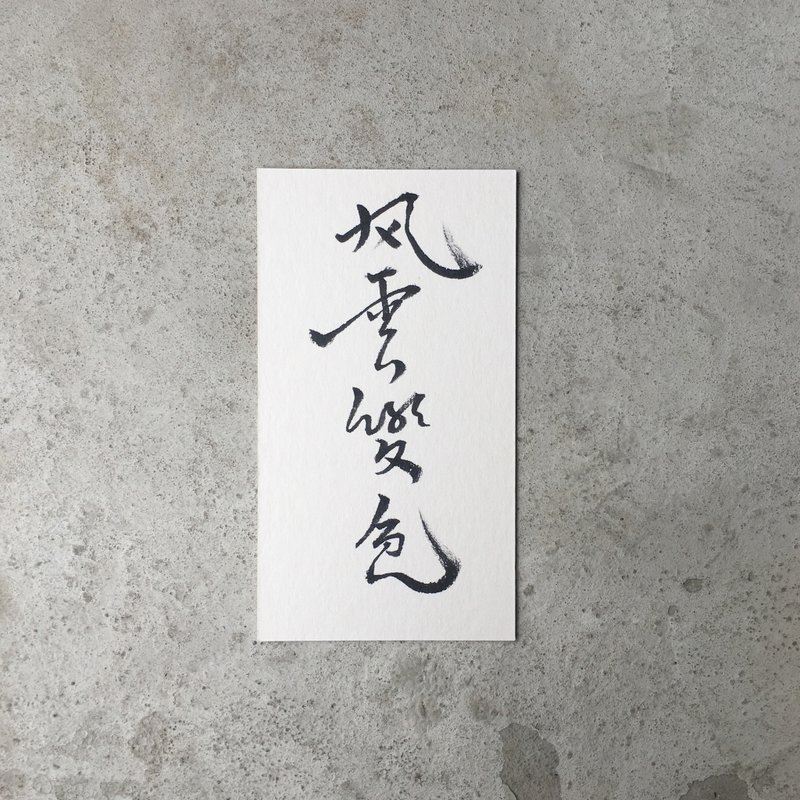 风雲變色